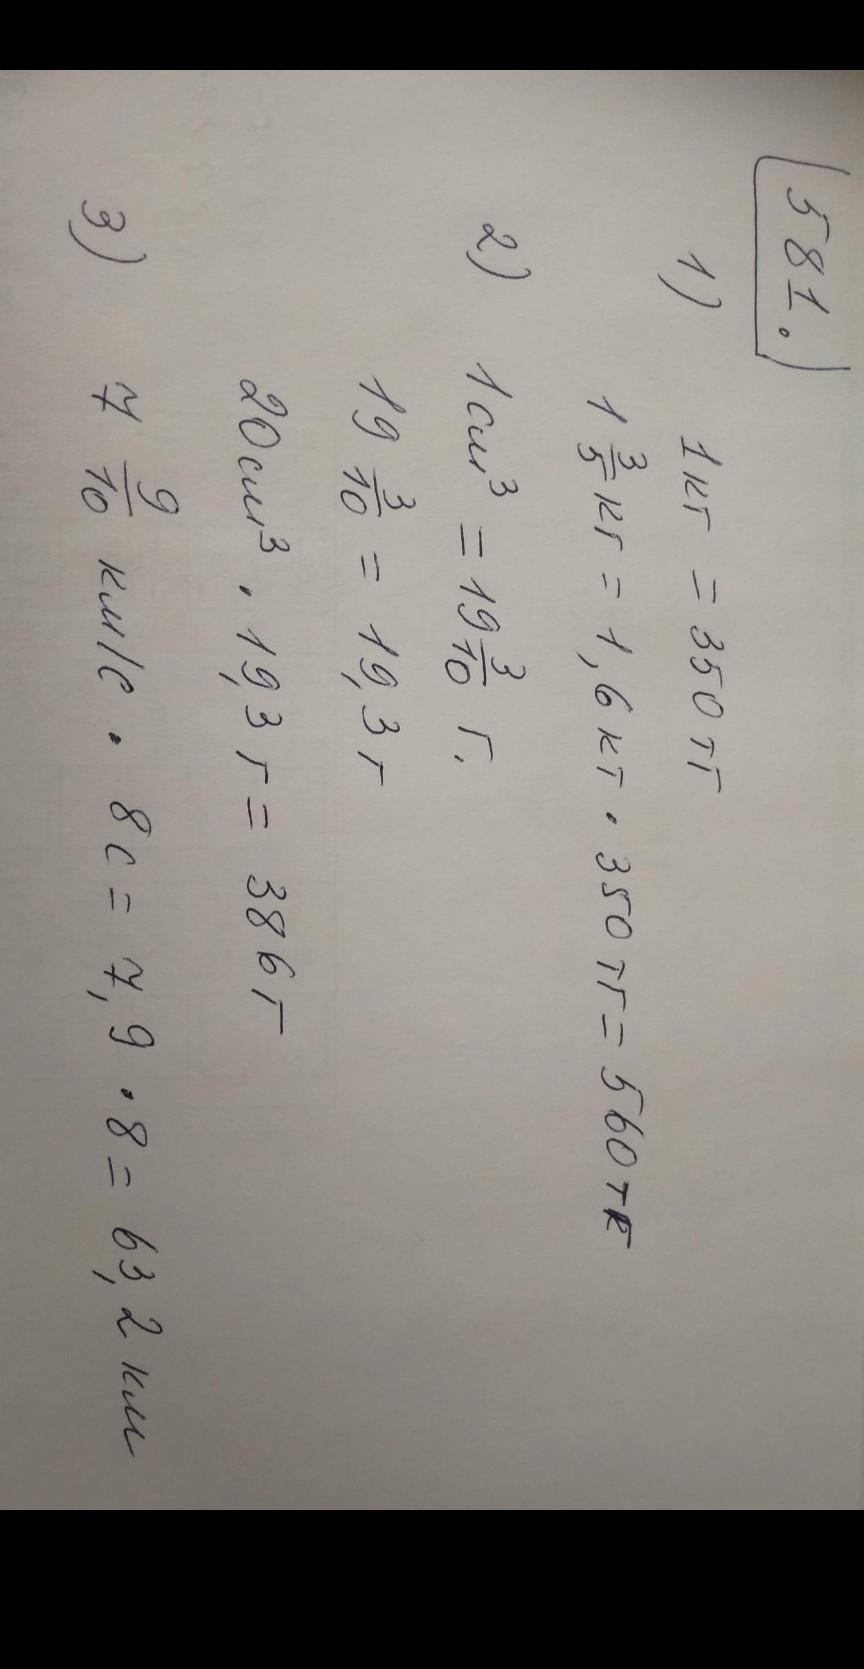 581.
1) 1кг = 350 тг
1 3/5 кг = 1,6 кг · 350 тг = 560 тг
2) 1 см³ = 19 3/10 г.
19 3/10 = 19,3 г
20 см³ · 19,3 г = 386 г
3) 7 9/10 км/с · 8с = 7,9 · 8 = 63,2 км